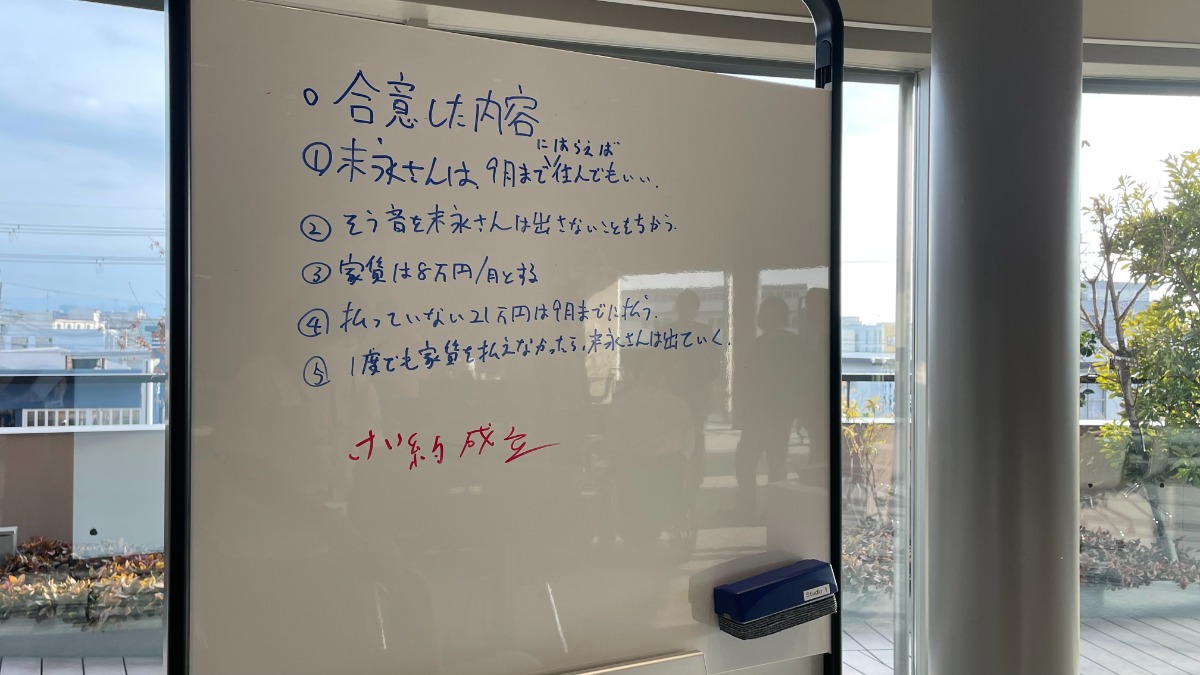 ○ 合意した内容
にはらえば
① 末永さんは、9月まで住んでもいい。
② そう音を末永さんは出さないことをちかう。
③ 家賃は8万円/月とする
④ 払っていない21万円は9月までに払う。
⑤ 1度でも家賃を払えなかったら、末永さんは出ていく。
けい約成立
Studio 1